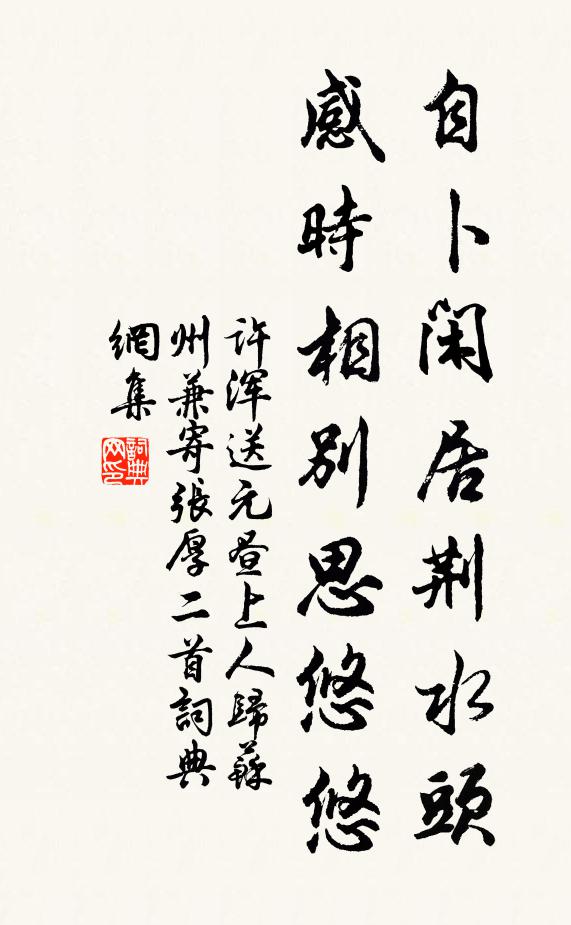 自卜閑居荆水頭
感時相別思悠悠
許渾送元晝上人歸蘇
州兼寄張厚二首詞典
網集
詞典
网印